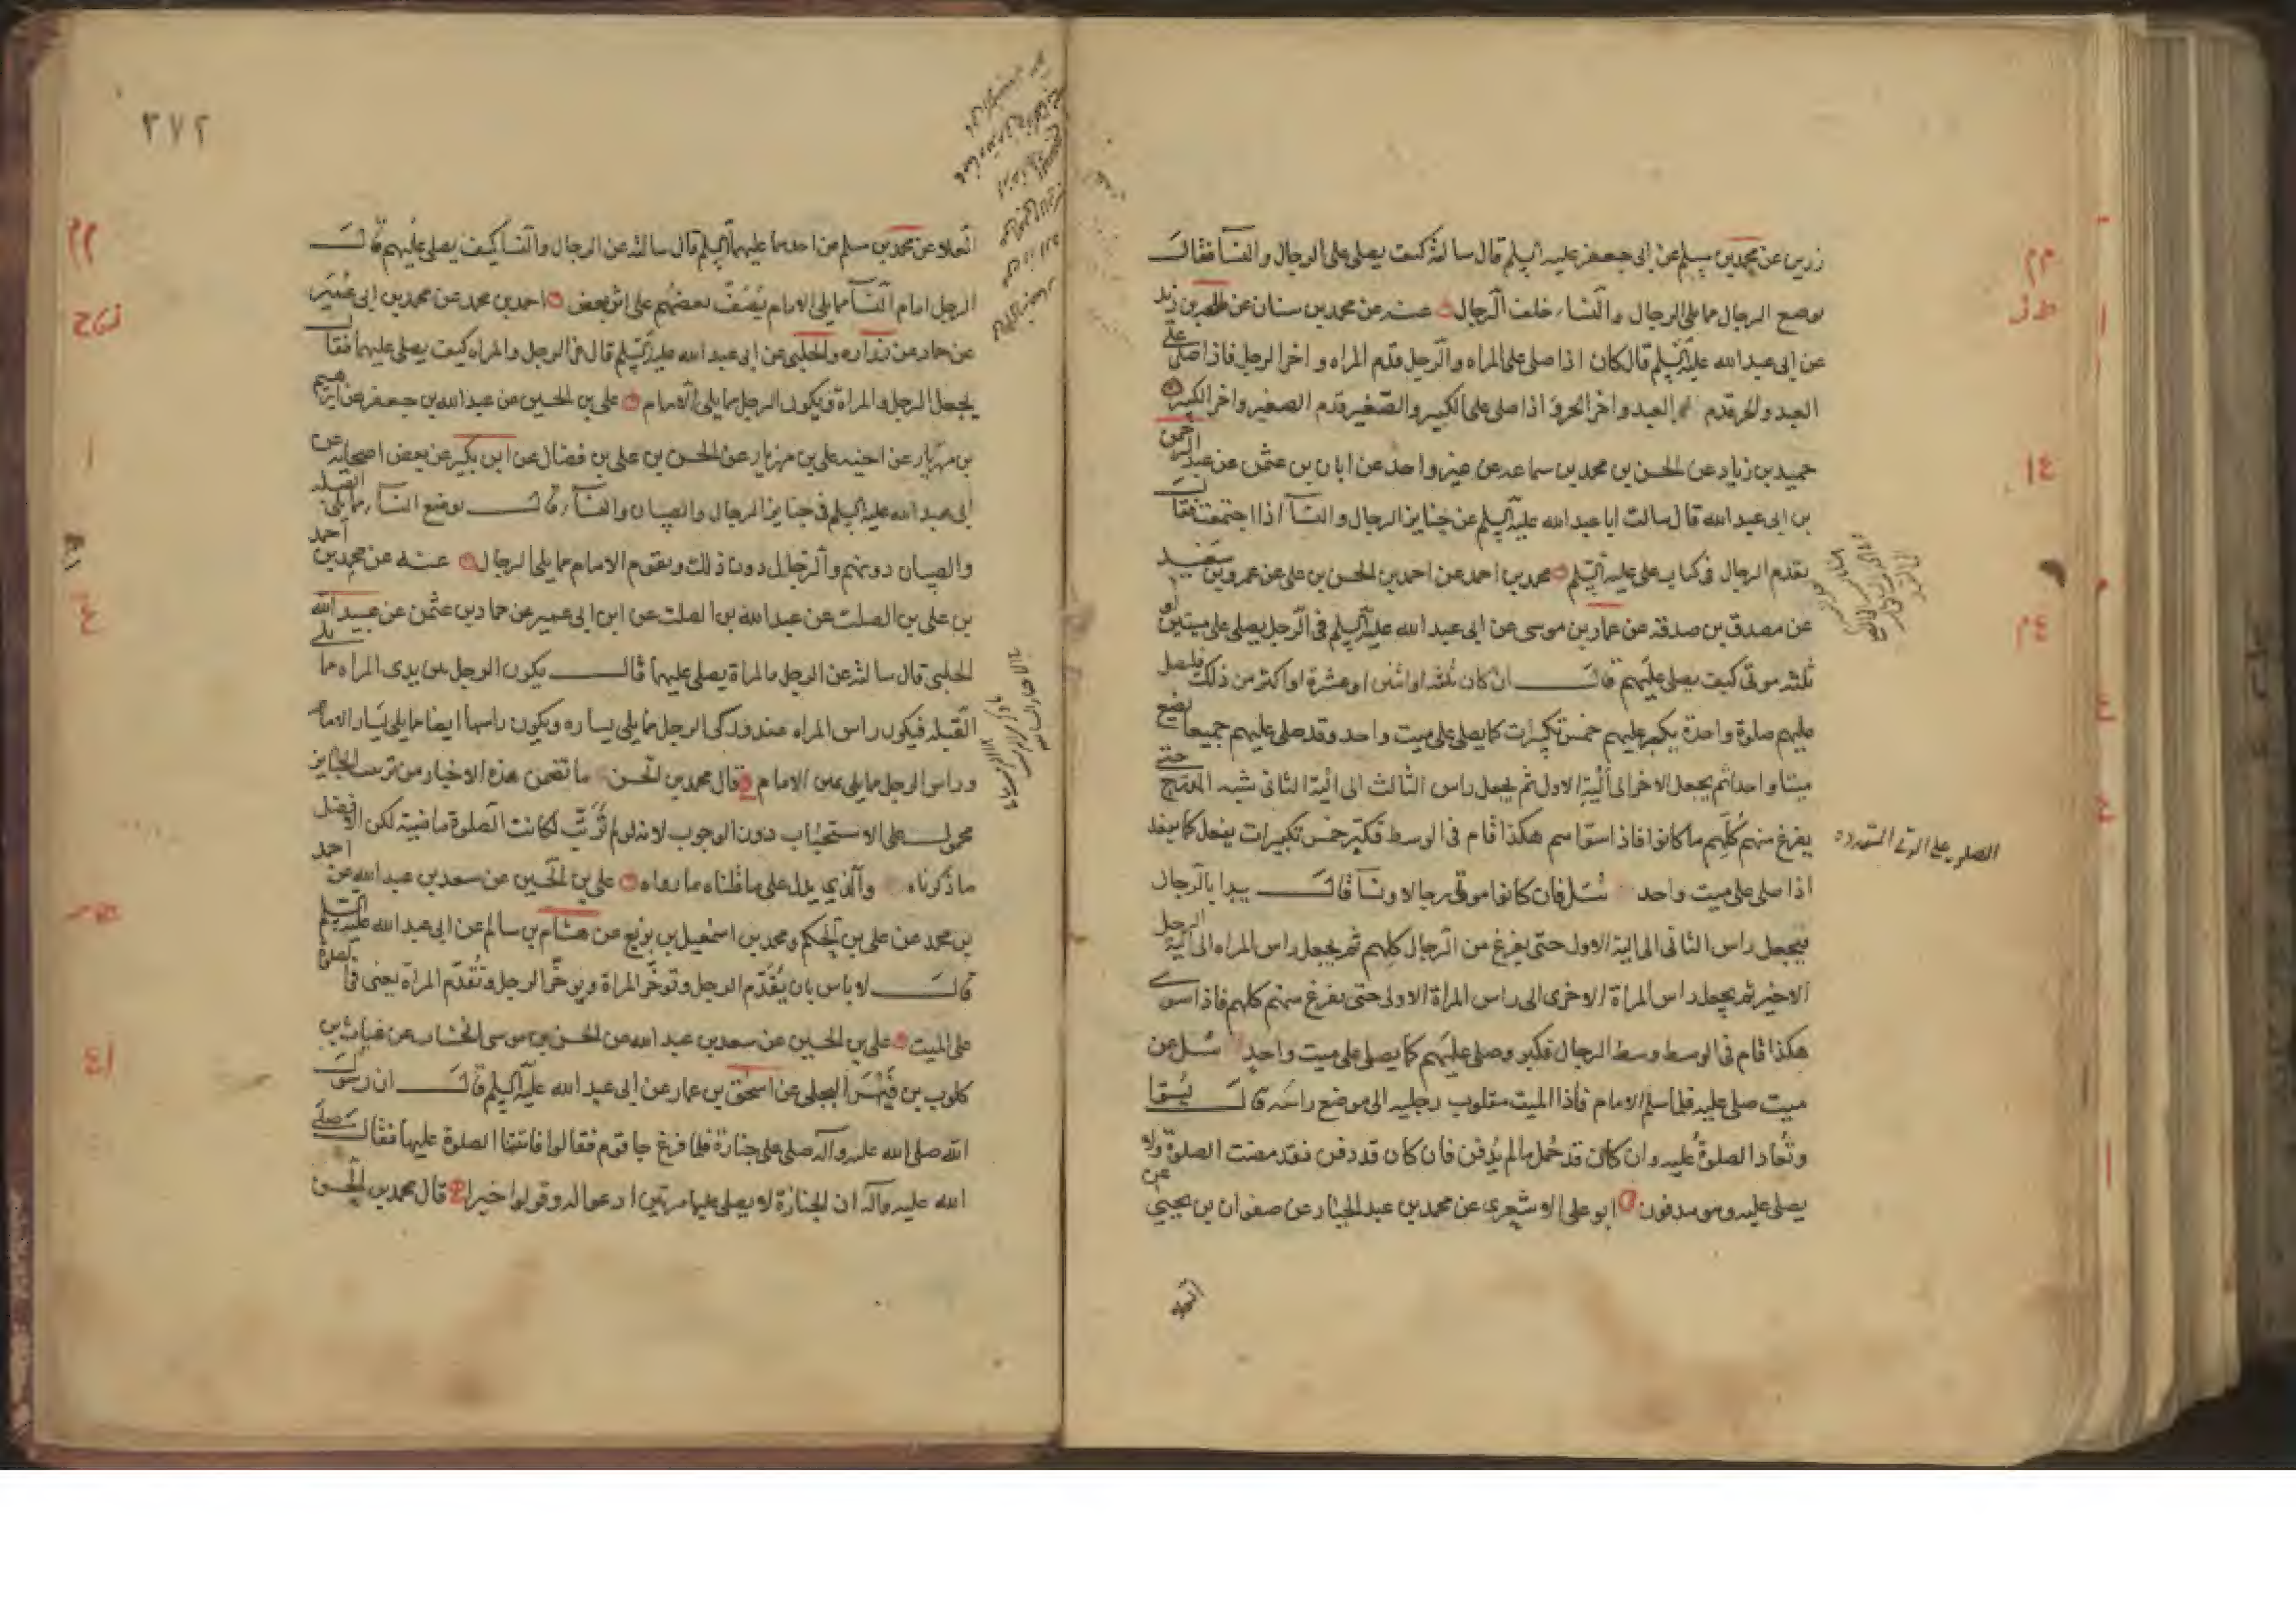 زرين عن محمد بن مسلم عن ابى جعفر عليه السلم قال سالته كيف يصلى على الرجال والنسآ فقالـ
يوضع الرجال مما يلى الرجال والنسا خلف الرجال عنه عن محمد بن سنان عن طلحه بن زيد
عن ابى عبد الله عليه السلم قال كان اذا صلى على المراه والرجل قدم المراه واخر الرجل فاذا صلى على
العبد والحر قدم العبد واخر الحر واذا صلى على الكبير والصغير قدم الصغير واخر الكبير
حميد بن زياد عن الحسن بن محمد بن سماعه عن غير واحد عن ابان بن عثمن عن عبد الرحمن
بن ابى عبد الله قال سالت ابا عبد الله عليه السلم عن جنايز الرجال والنسآ اذا اجتمعت فقالـ
يقدم الرجال فى كتاب على عليه السلم محمد بن احمد عن احمد بن الحسن بن على عن عمرو بن سعيد
عن مصدق بن صدقه عن عمار بن موسى عن ابى عبد الله عليه السلم فى الرجل يصلى على ميتين او
ثلثه موتى كيف يصلى عليهم قالـ ان كان ثلثه او اثنين او عشرة او اكثر من ذلك فليصل
عليهم صلوة واحدة يكبر عليهم خمس تكبيرات كما يصلى على ميت واحد وقد صلى عليهم جميعا يضع
ميتا واحدا ثم يجعل الاخر الى اليه الاول ثم يجعل راس الثالث الى الية الثانى شبه المدرج حتى
يفرغ منهم كلهم ما كانوا فاذا سواهم هكذا قام فى الوسط فكبر خمس تكبيرات يفعل كما يفعل
اذا صلى على ميت واحد سئل فان كانوا موتى رجالا ونسآ قالـ يبدا بالرجال
فيجعل راس الثانى الى الية الاول حتى يفرغ من الرجال كلهم ثم يجعل راس المراه الى الية الرجل
الاخير ثم يجعل راس المراة الاخرى الى راس المراة الاولى حتى يفرغ منهم كلهم فاذا سوى
هكذا قام فى الوسط وسط الرجال فكبر وصلى عليهم كما يصلى على ميت واحد سئل عن
ميت صلى عليه فلما سلم الامام فاذا الميت مقلوب رجليه الى موضع راسه قالـ يسوا
وتعاد الصلوة عليه وان كان قد حمل ما لم يدفن فان كان قد دفن فقد مضت الصلوة ولا
يصلى عليه وهو مدفون ابو على الاشعرى عن محمد بن عبد الجبار عن صفوان بن يحيى عن
الصلوه على الموتى المتعدده
٢٧٢
العلاء عن محمد بن مسلم عن احدهما عليهما السلم قال سالته عن الرجال والنسا كيف يصلى عليهم قالـ
الرجل امام النسآ مما يلى الامام يصف بعضهم على اثر بعض احمد بن محمد عن محمد بن ابى عمير
عن حماد عن زراره والحلبى عن ابى عبد الله عليه السلم قال فى الرجل والمراه كيف يصلى عليهما فقالـ
يجعل الرجل والمراة ويكون الرجل مما يلى الامام على بن الحسين عن عبد الله بن جعفر عن ابرهيم
بن مهزيار عن اخيه على بن مهزيار عن الحسن بن على بن فضال عن ابن بكير عن بعض اصحابه عن
ابى عبد الله عليه السلم فى جنايز الرجال والصبيان والنسآ قالـ يوضع النسآ مما يلى القبله
والصبيان دونهم والرجال دون ذلك ويقوم الامام مما يلى الرجال عنه عن محمد بن احمد
بن على بن الصلت عن عبد الله بن الصلت عن ابن ابى عمير عن حماد بن عثمن عن عبيد الله
الحلبى قال سالته عن الرجل والمراة يصلى عليهما قالـ يكون الرجل بين يدى المراه مما يلى
القبله فيكون راس المراه عند وركى الرجل مما يلى يساره ويكون راسها ايضا مما يلى يسار الامام
وراس الرجل مما يلى يمين الامام قال محمد بن الحسن ما تضمن هذه الاخبار من ترتيب الجنايز
محمولـ على الاستحباب دون الوجوب لانه لو لم ترتب لكانت الصلوة ماضية لكن الافضل
ما ذكرناه والذى يدل على ما قلناه ما رواه على بن الحسين عن سعد بن عبد الله عن احمد
بن محمد عن على بن الحكم ومحمد بن اسمعيل بن بزيع عن هشام بن سالم عن ابى عبد الله عليه السلم
قالـ لا باس بان يقدم الرجل وتوخر المراة ويوخر الرجل وتقدم المراة يعنى فى الصلوة
على الميت على بن الحسين عن سعد بن عبد الله عن الحسن بن موسى الخشاب عن غياث بن
كلوب بن فيهس البجلى عن اسحق بن عمار عن ابى عبد الله عليه السلم قالـ ان رسولـ
الله صلى الله عليه وآله صلى على جنازة فلما فرغ جا قوم فقالوا فاتتنا الصلوة عليها فقالـ صلى
الله عليه وآله ان الجنازة لا يصلى عليها مرتين ادعوا له وقولوا خيرا قال محمد بن الحسن